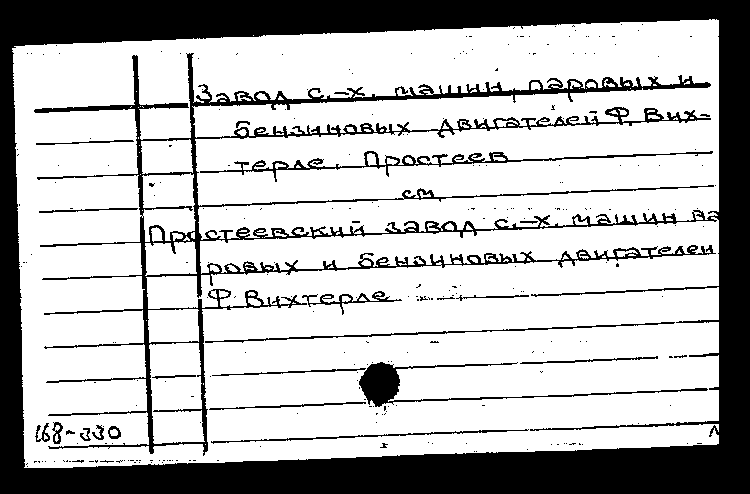 Завод с.-х. машин, паровых и
бензиновых двигателей Ф. Вих-
терле. Простеев
см.
Простеевский завод с.-х. машин па
ровых и бензиновых двигателей
Ф. Вихтерле
168-330